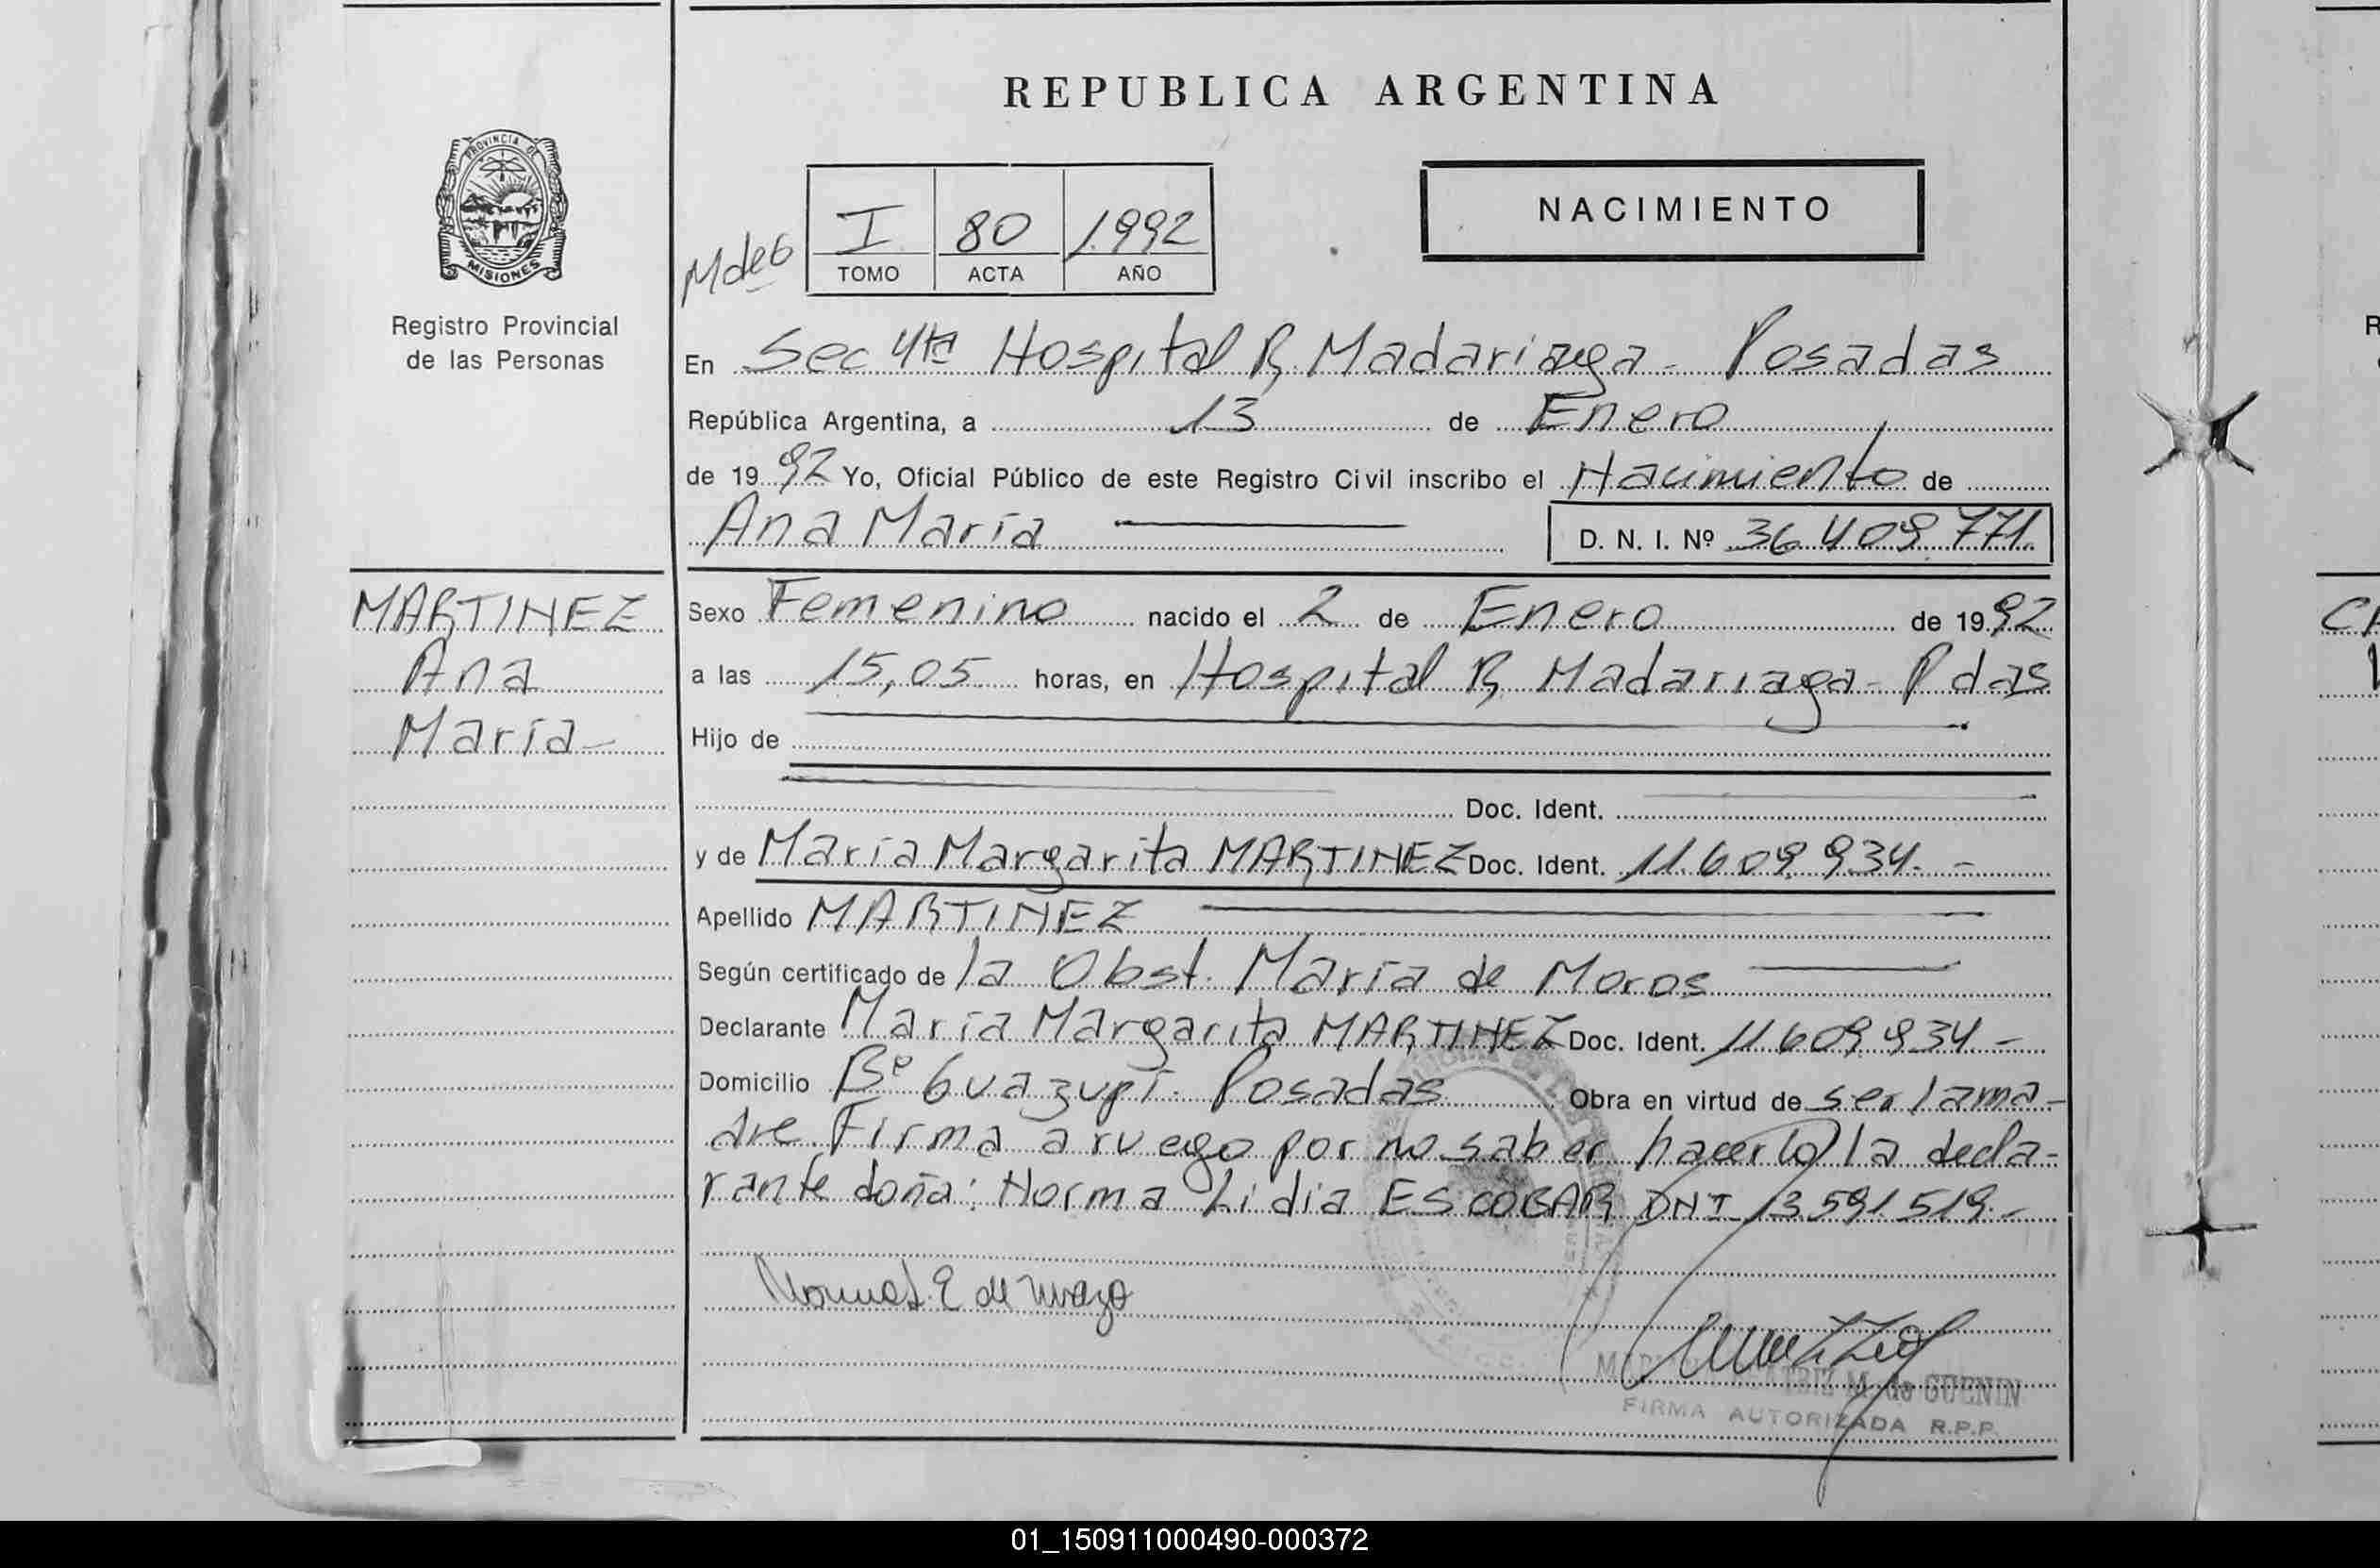 REPUBLICA ARGENTINA
PROVINCIA DE
MISIONES
Registro Provincial
de las Personas
NACIMIENTO
I 80 1992
TOMO ACTA AÑO
En Sec 4ta Hospital R. Madariaga - Posadas
República Argentina, a 13 de Enero
de 1992 Yo, Oficial Público de este Registro Civil inscribo el Nacimiento de
Ana María D. N. I. Nº 36.409.771.
MARTINEZ
Ana
María -
Sexo Femenino nacido el 2 de Enero de 1992
a las 15,05 horas, en Hospital R. Madariaga - Pdas
Hijo de
Doc. Ident.
y de María Margarita MARTINEZ Doc. Ident. 11.609.934. -
Apellido MARTINEZ
Según certificado de la Obst. María de Moros
Declarante María Margarita MARTINEZ Doc. Ident. 11.609.934 -
Domicilio Bº Guazupí - Posadas Obra en virtud de ser la ma-
dre. Firma a ruego por no saber hacerlo la decla-
rante doña: Norma Lidia ESCOBAR DNI 13.591.519. -
BEATRIZ M. de GUENIN
FIRMA AUTORIZADA R.P.P.
01_150911000490-000372